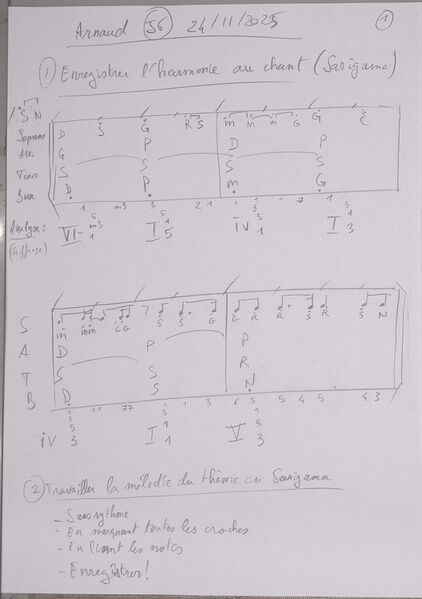 Arnaud S6 24/11/2025 1
1 Enregistrer l'harmonie au chant (Sarigama)
/ S N
Soprano D S G R S m m m G G
Alto G P D P
Tenor S S S S
Basse D P m G
1 m3 3 2 1 1 1 7 1
Analyse: VI- m3 1 I 5 1 5 iv 5 1 I 5 1 3
(Chiffrage)
S m m m G G S S G G R R S R S N
A D P P
T S S R
B D S N
1 11 77 5 1 3 6 5 5 4 5 4 3
iv 5 3 I 5 1 V 5 3
2 Travailler la mélodie du thème en Sarigama
- Sans rythme
- En marquant toutes les croches
- En lisant les notes
- Enregistrer!